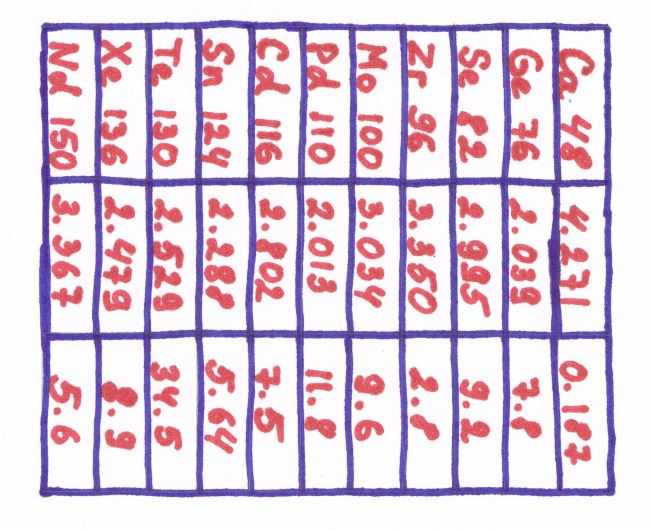 Ca 48 4.271 0.187
Ge 76 2.039 7.8
Se 82 2.995 9.2
Zr 96 3.350 2.8
Mo 100 3.034 9.6
Pd 110 2.013 11.8
Cd 116 2.802 7.5
Sn 124 2.288 5.64
Te 130 2.529 34.5
Xe 136 2.479 8.9
Nd 150 3.367 5.6